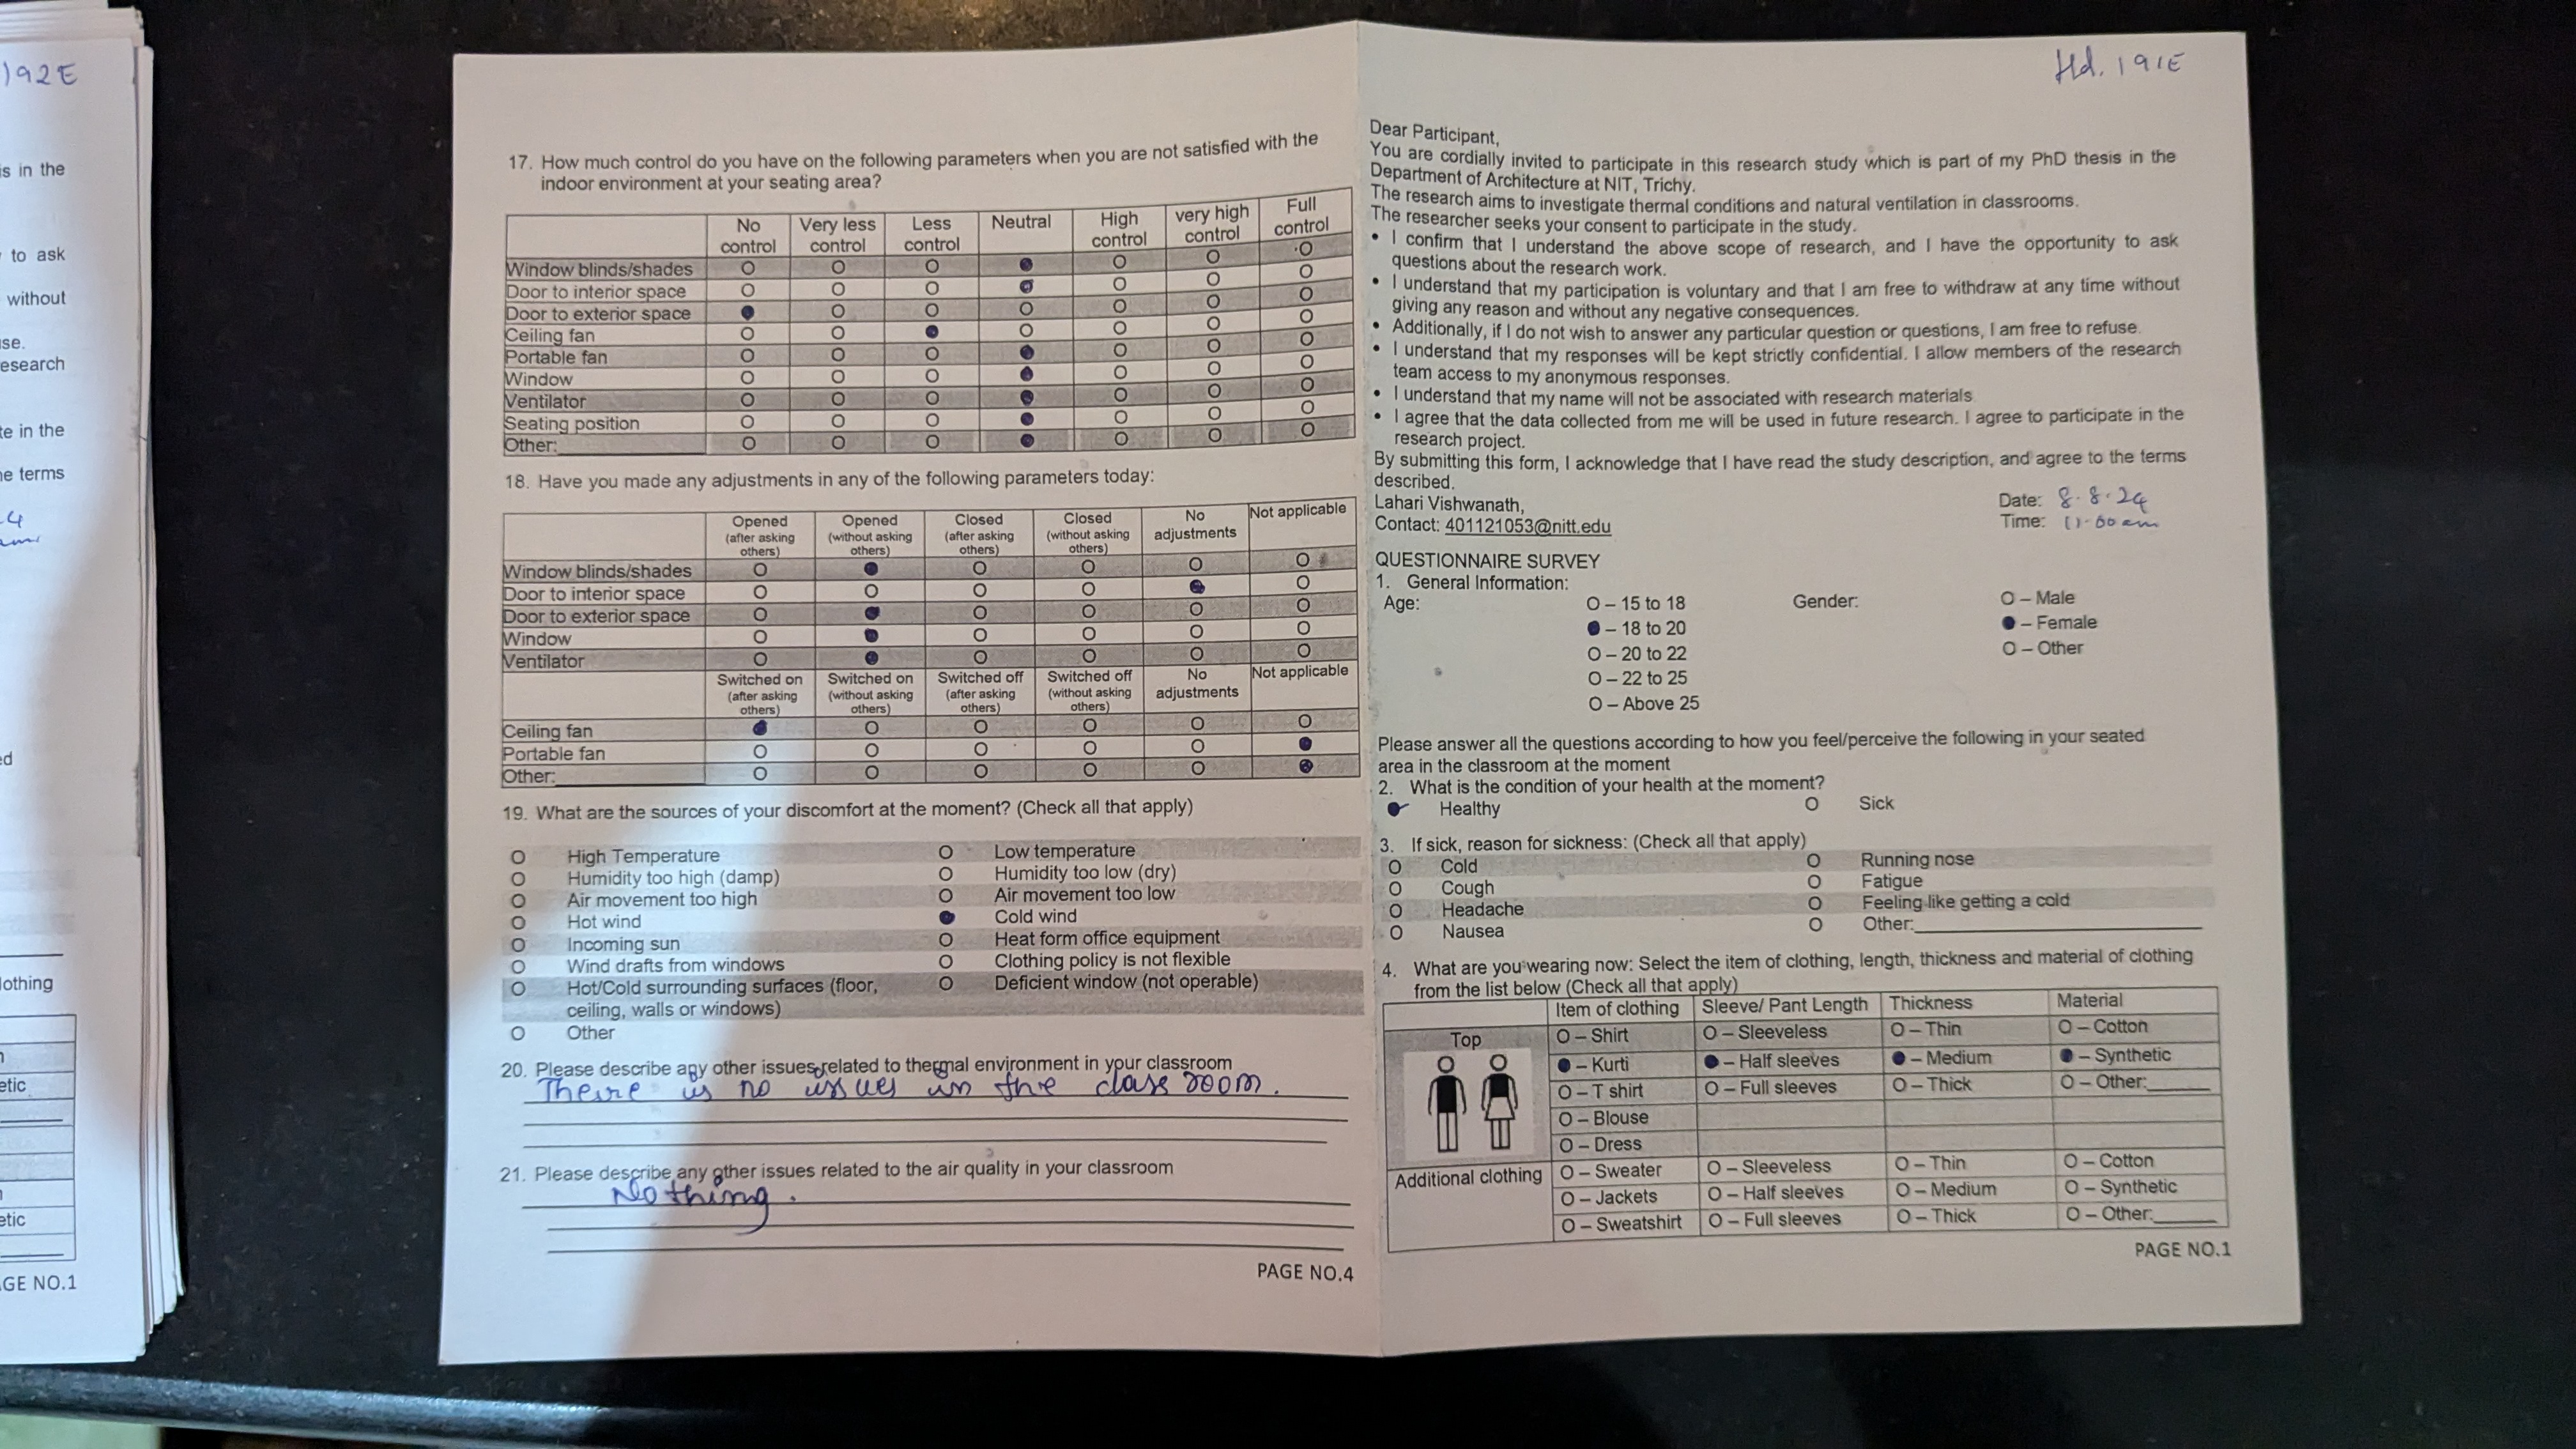 192E
is in the
to ask
without
se.
esearch
te in the
e terms
ed
lothing
etic
etic
GE NO.1
17. How much control do you have on the following parameters when you are not satisfied with the
indoor environment at your seating area?
No control Very less control Less control Neutral High control very high control Full control
Window blinds/shades O O O O O O
Door to interior space O O O O O O
Door to exterior space O O O O O O
Ceiling fan O O O O O O
Portable fan O O O O O O
Window O O O O O O
Ventilator O O O O O O
Seating position O O O O O O
Other: O O O O O O
18. Have you made any adjustments in any of the following parameters today:
Opened (after asking others) Opened (without asking others) Closed (after asking others) Closed (without asking others) No adjustments Not applicable
Window blinds/shades O O O O O
Door to interior space O O O O O
Door to exterior space O O O O O
Window O O O O O
Ventilator O O O O O
Switched on (after asking others) Switched on (without asking others) Switched off (after asking others) Switched off (without asking others) No adjustments Not applicable
Ceiling fan O O O O O
Portable fan O O O O O
Other: O O O O O
19. What are the sources of your discomfort at the moment? (Check all that apply)
O High Temperature O Low temperature
O Humidity too high (damp) O Humidity too low (dry)
O Air movement too high O Air movement too low
O Hot wind Cold wind
O Incoming sun O Heat form office equipment
O Wind drafts from windows O Clothing policy is not flexible
O Hot/Cold surrounding surfaces (floor, O Deficient window (not operable)
ceiling, walls or windows)
O Other
20. Please describe any other issues related to thermal environment in your classroom
There is no issues in the class room.
21. Please describe any other issues related to the air quality in your classroom
Nothing.
PAGE NO.4
Hd. 191E
Dear Participant,
You are cordially invited to participate in this research study which is part of my PhD thesis in the
Department of Architecture at NIT, Trichy.
The research aims to investigate thermal conditions and natural ventilation in classrooms.
The researcher seeks your consent to participate in the study.
• I confirm that I understand the above scope of research, and I have the opportunity to ask
questions about the research work.
• I understand that my participation is voluntary and that I am free to withdraw at any time without
giving any reason and without any negative consequences.
• Additionally, if I do not wish to answer any particular question or questions, I am free to refuse.
• I understand that my responses will be kept strictly confidential. I allow members of the research
team access to my anonymous responses.
• I understand that my name will not be associated with research materials
• I agree that the data collected from me will be used in future research. I agree to participate in the
research project.
By submitting this form, I acknowledge that I have read the study description, and agree to the terms
described.
Lahari Vishwanath,
Contact: 401121053@nitt.edu
Date: 8.8.24
Time: 11.00 am
QUESTIONNAIRE SURVEY
1. General Information:
Age: O – 15 to 18 Gender: O – Male
– 18 to 20 – Female
O – 20 to 22 O – Other
O – 22 to 25
O – Above 25
Please answer all the questions according to how you feel/perceive the following in your seated
area in the classroom at the moment
2. What is the condition of your health at the moment?
Healthy O Sick
3. If sick, reason for sickness: (Check all that apply)
O Cold O Running nose
O Cough O Fatigue
O Headache O Feeling like getting a cold
O Nausea O Other:
4. What are you wearing now: Select the item of clothing, length, thickness and material of clothing
from the list below (Check all that apply)
Item of clothing Sleeve/ Pant Length Thickness Material
Top O – Shirt O – Sleeveless O – Thin O – Cotton
– Kurti – Half sleeves – Medium – Synthetic
O – T shirt O – Full sleeves O – Thick O – Other:
O – Blouse
O – Dress
Additional clothing O – Sweater O – Sleeveless O – Thin O – Cotton
O – Jackets O – Half sleeves O – Medium O – Synthetic
O – Sweatshirt O – Full sleeves O – Thick O – Other:
PAGE NO.1